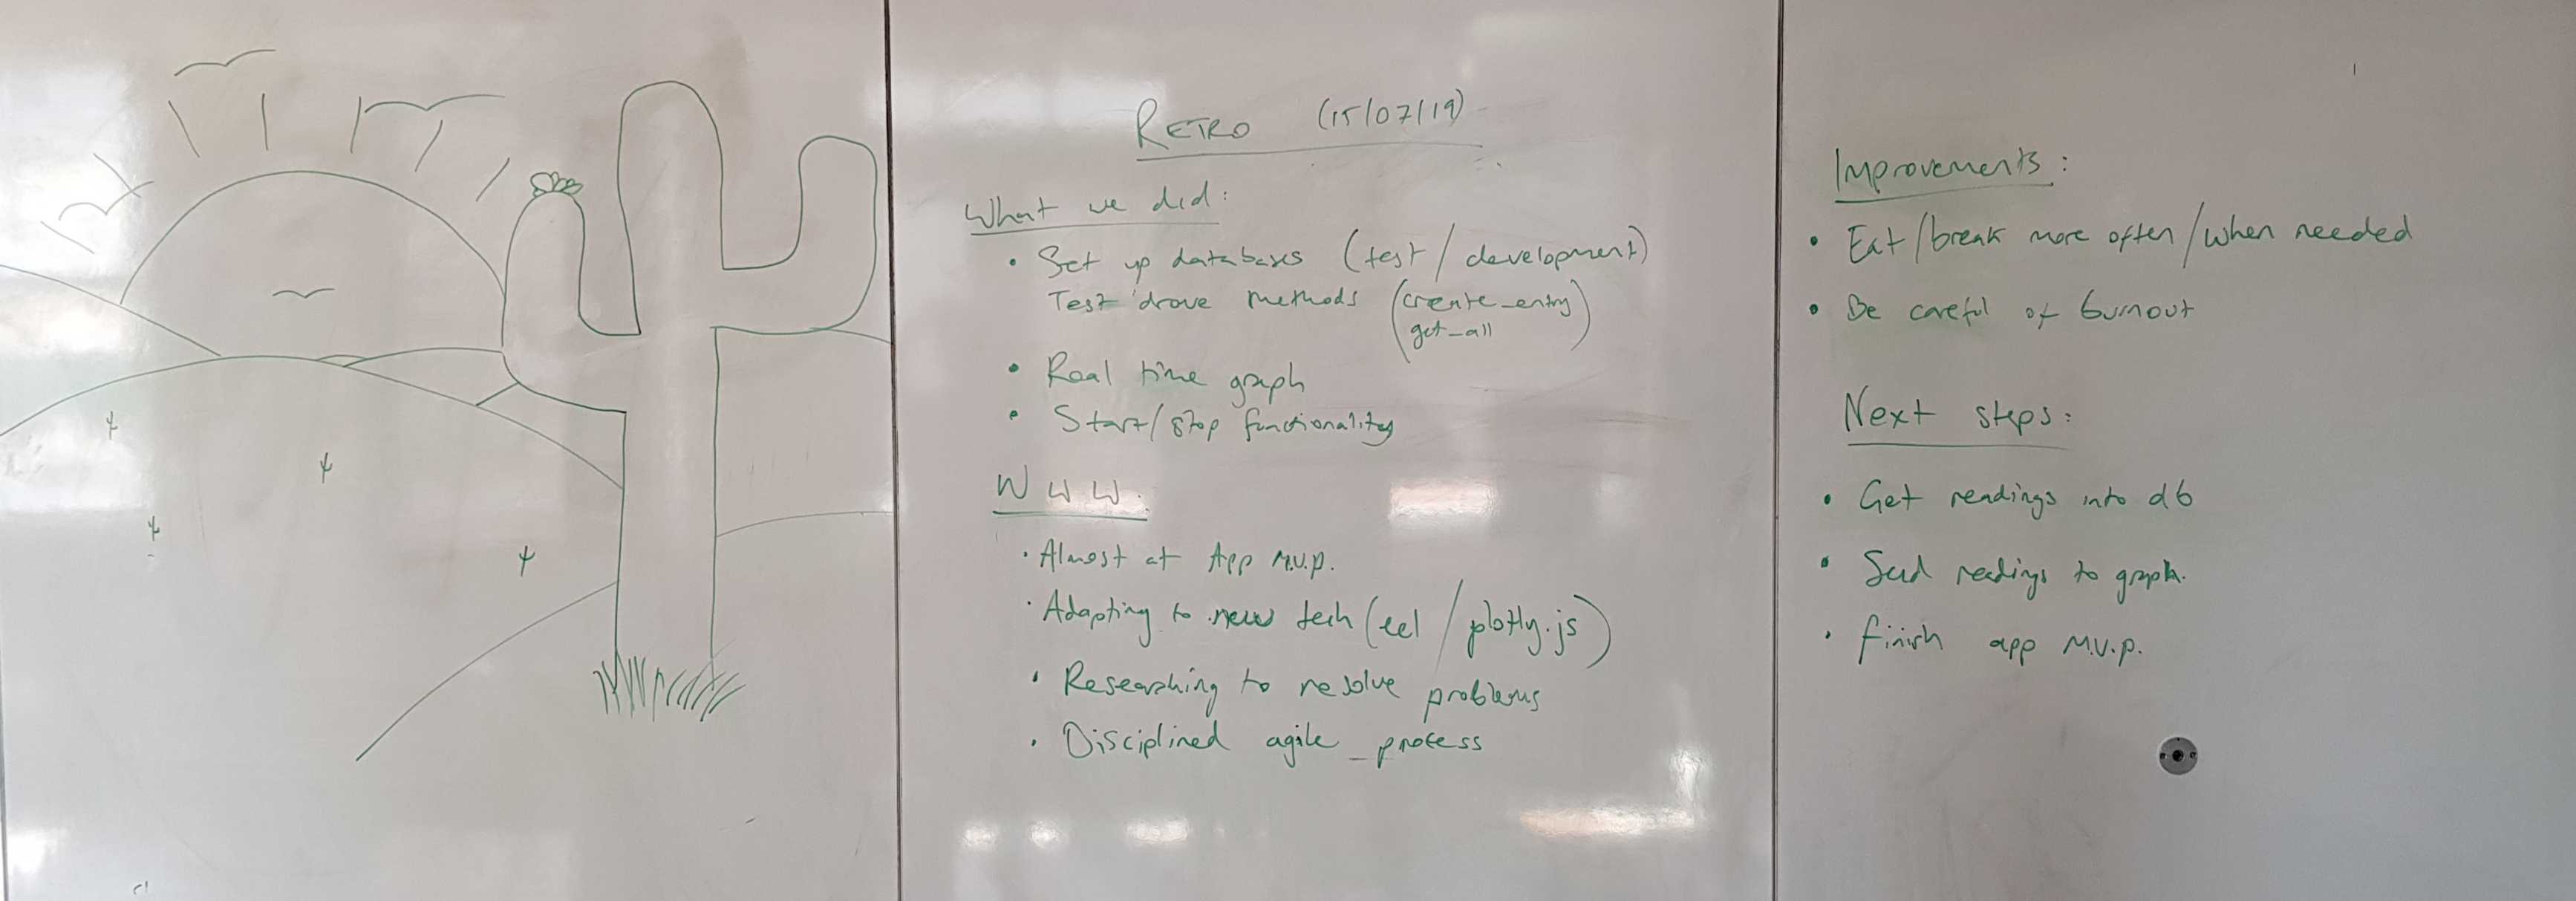 RETRO (15/07/19)
What we did:
• Set up databases (test / development)
Test drove methods (create_entry
get_all)
• Real time graph
• Start/stop functionality
WWW:
• Almost at App M.V.P.
• Adapting to new tech (eel / plotly.js)
• Researching to resolve problems
• Disciplined agile process
Improvements:
• Eat/break more often/when needed
• Be careful of burnout
Next steps:
• Get readings into db
• Send readings to graph.
• Finish app M.V.P.